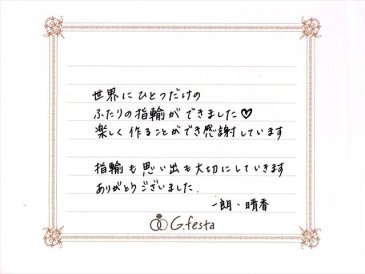 世界にひとつだけの
ふたりの指輪ができました♡
楽しく作ることができ感謝しています
指輪も思い出も大切にしていきます
ありがとうございました.
一朗・晴香
G.festa